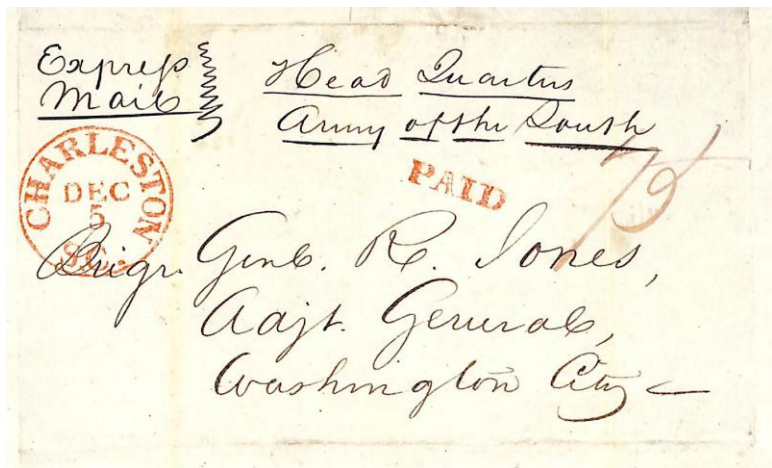 Express
Mail
Head Quarters
Army of the South
CHARLESTON
DEC
5
S.C.
PAID
75
Brigr. Genl. R. Jones,
Adjt. General,
Washington City